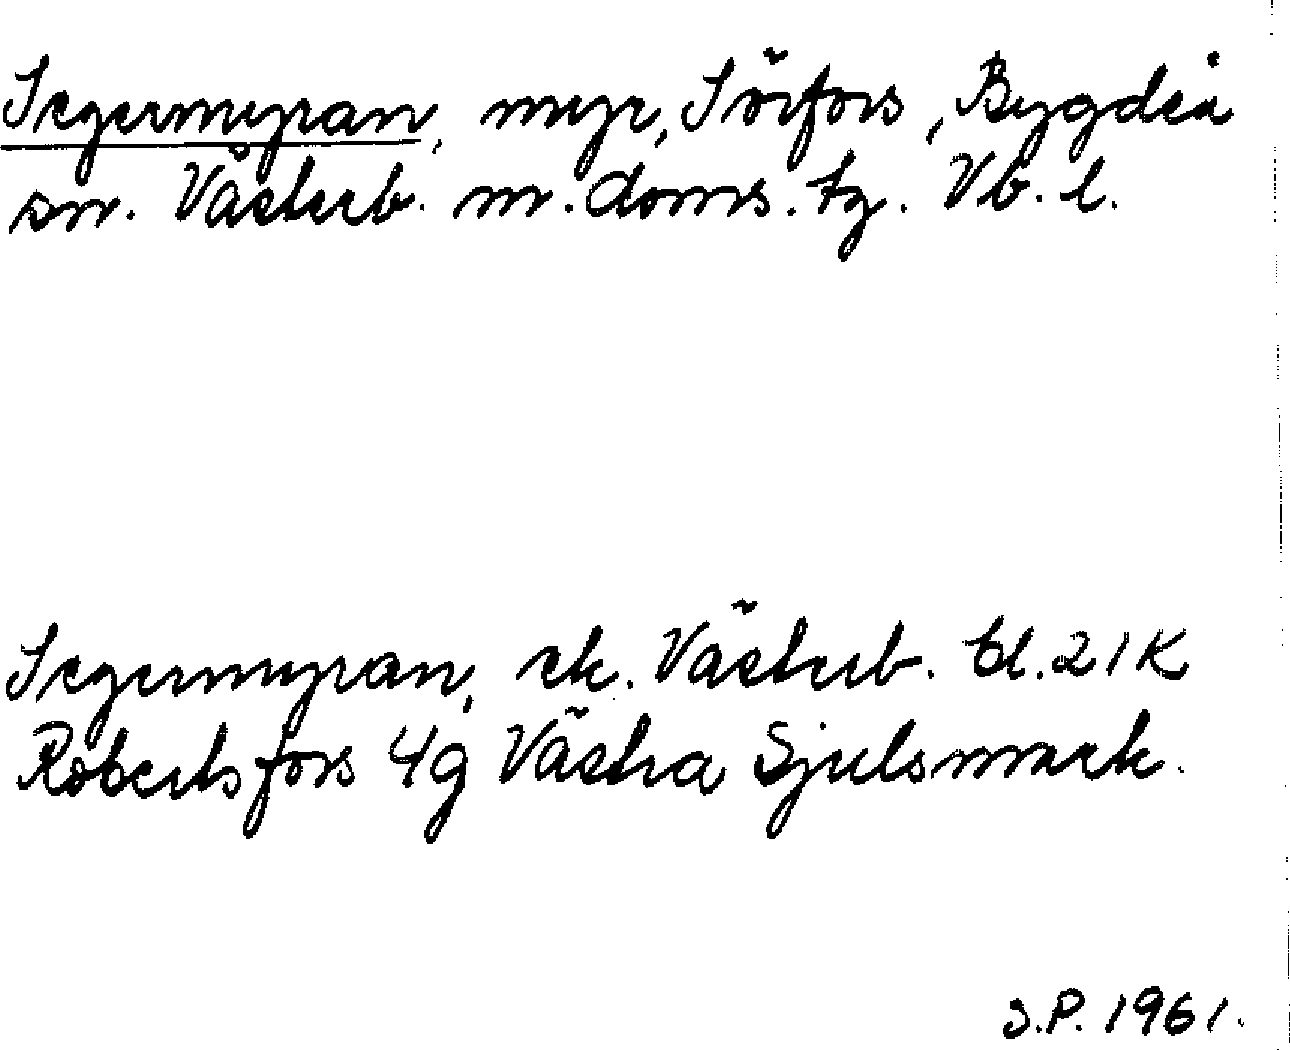 Segermyran, myr, Sörfors, Bygdeå
sn. Västerb. m. doms. tg. Vb. l.
Segermyran, ek. Västerb. bl. 21K
Robertsfors 4g Västra Sjulsmark.
J.P. 1961.